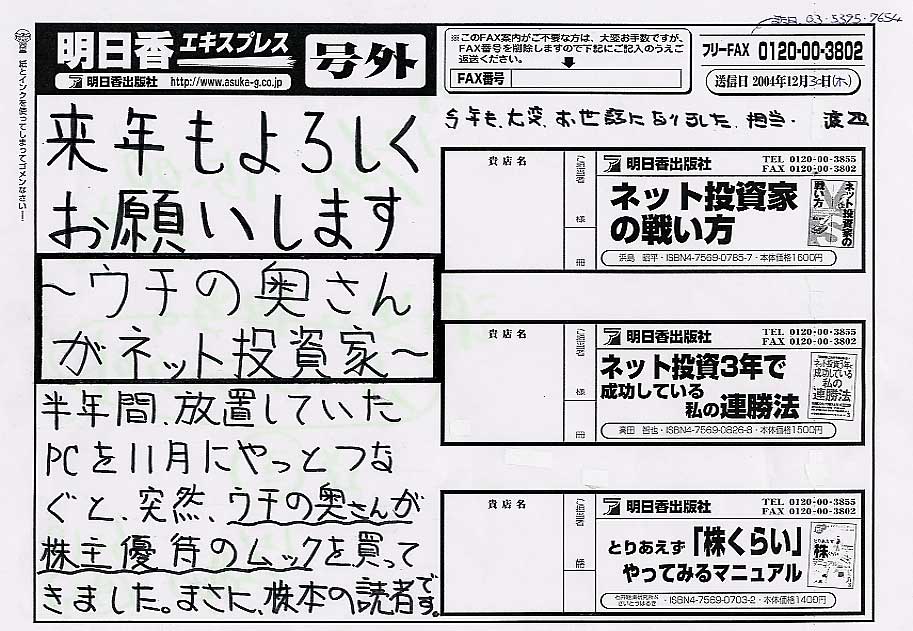 電話 03-5395-7654
紙とインクを使ってしまってゴメンなさい!
明日香エキスプレス
号外
明日香出版社 http://www.asuka-g.co.jp
※このFAX案内がご不要な方は、大変お手数ですが、
FAX番号を削除しますので下記にご記入のうえご
返送ください。
FAX番号
フリーFAX 0120-00-3802
送信日 2004年12月30日(木)
今年も、大変、お世話になりました。担当・渡辺
来年もよろしく
お願いします
〜ウチの奥さん
がネット投資家〜
半年間、放置していた
PCを11月にやっとつな
ぐと、突然、ウチの奥さんが
株主優待のムックを買って
きました。まさに、株本の読者です。
貴店名
ご担当者
様
冊
明日香出版社
TEL 0120-00-3855
FAX 0120-00-3802
ネット投資家
の戦い方
ネット投資家の
戦い方
浜島 昭平・ISBN4-7569-0785-7・本体価格1600円
貴店名
ご担当者
様
冊
明日香出版社
TEL 0120-00-3855
FAX 0120-00-3802
ネット投資3年で
成功している
私の連勝法
ネット投資3年で
成功している
私の
連勝法
濱田 智也・ISBN4-7569-0826-8・本体価格1500円
貴店名
ご担当者
様
冊
明日香出版社
TEL 0120-00-3855
FAX 0120-00-3802
とりあえず「株くらい」
やってみるマニュアル
とりあえず
株
石井経済研究所&
さいとうはるき
・ISBN4-7569-0703-2・本体価格1400円